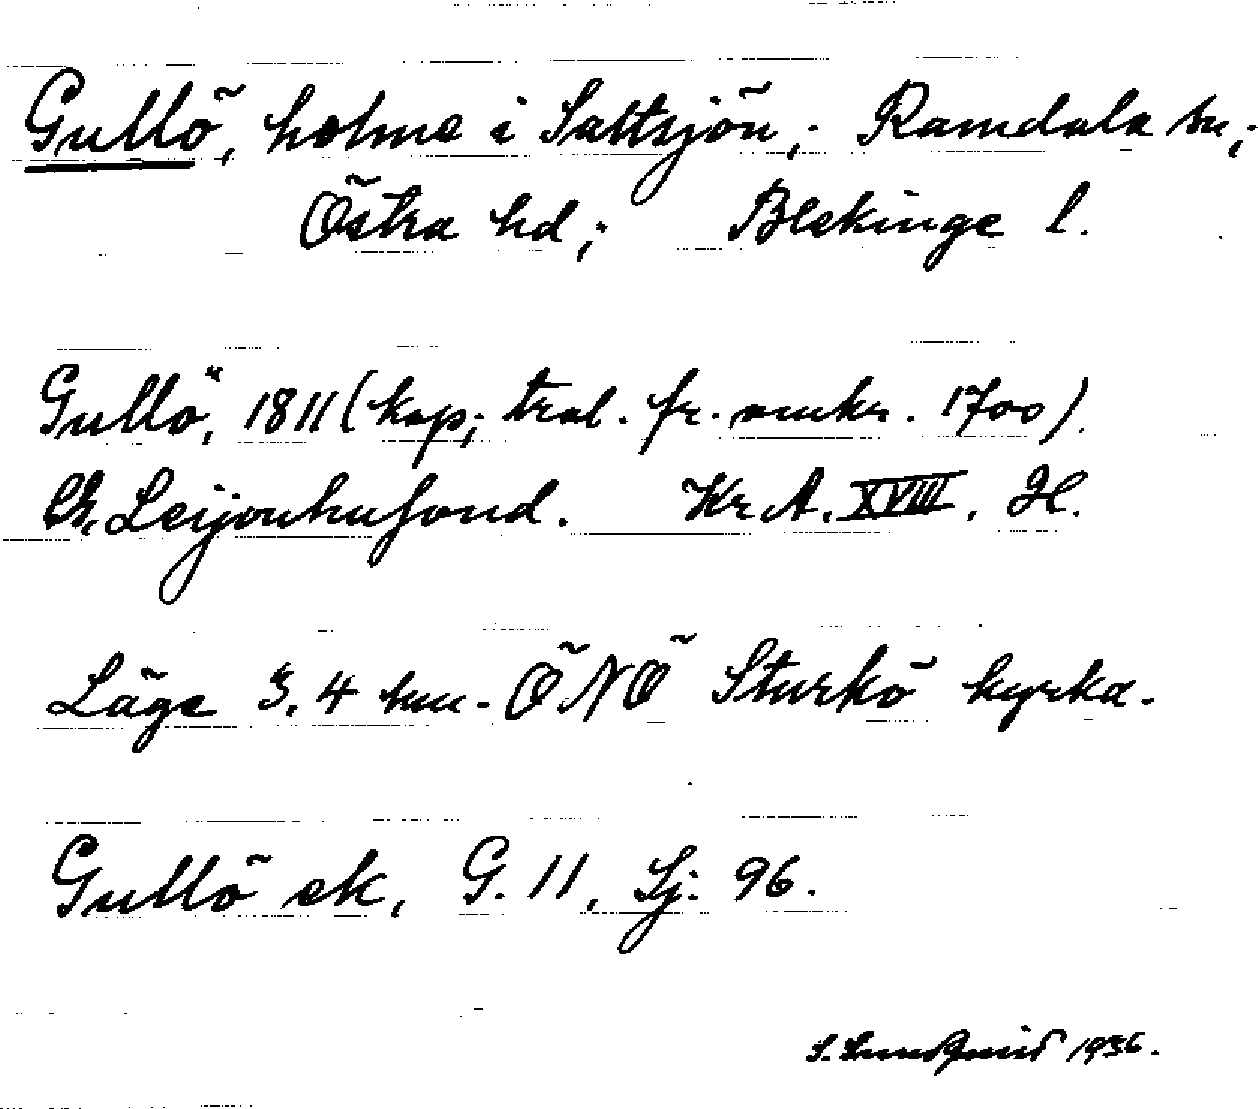 Gullö, holme i Saltsjön; Ramdala sn;
Östra hd; Blekinge l.
Gullö, 1811 (kop; trol. fr. omkr. 1700).
Ch. Leijonhufvud. Kr. A. XVIII. H.
Läge 3.4 km. ÖNÖ Sturkö kyrka.
Gullö ek, G. 11, Sj: 96.
S. Lundqvist 1936.